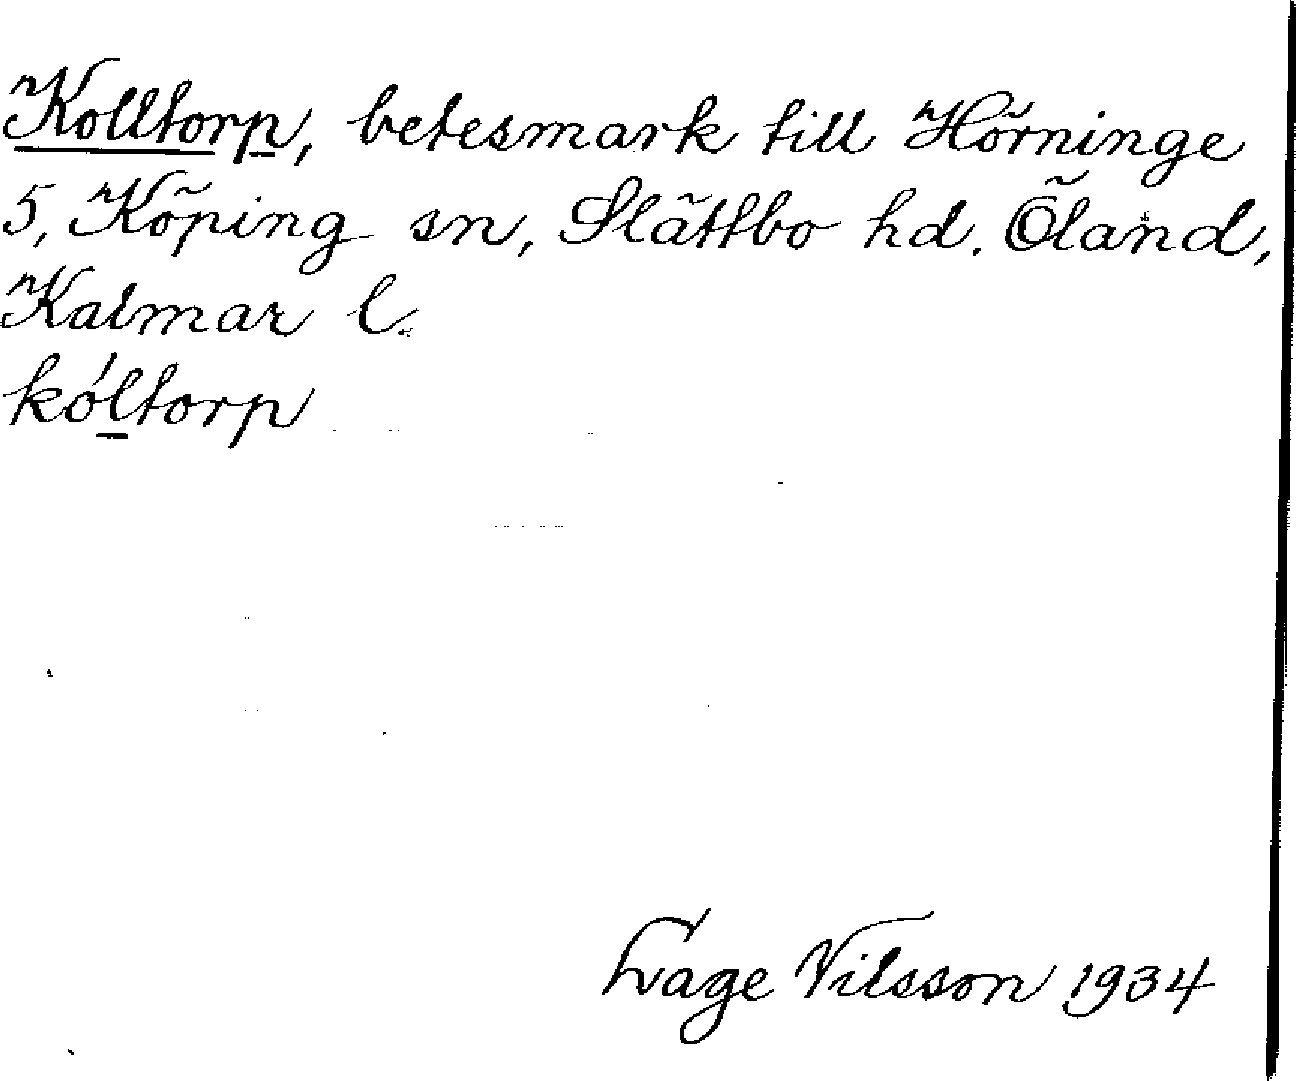 Kolltorp, betesmark till Hörninge
5, Köping sn, Slättbo hd. Öland,
Kalmar l.
kóltorp
Lage Nilsson 1934